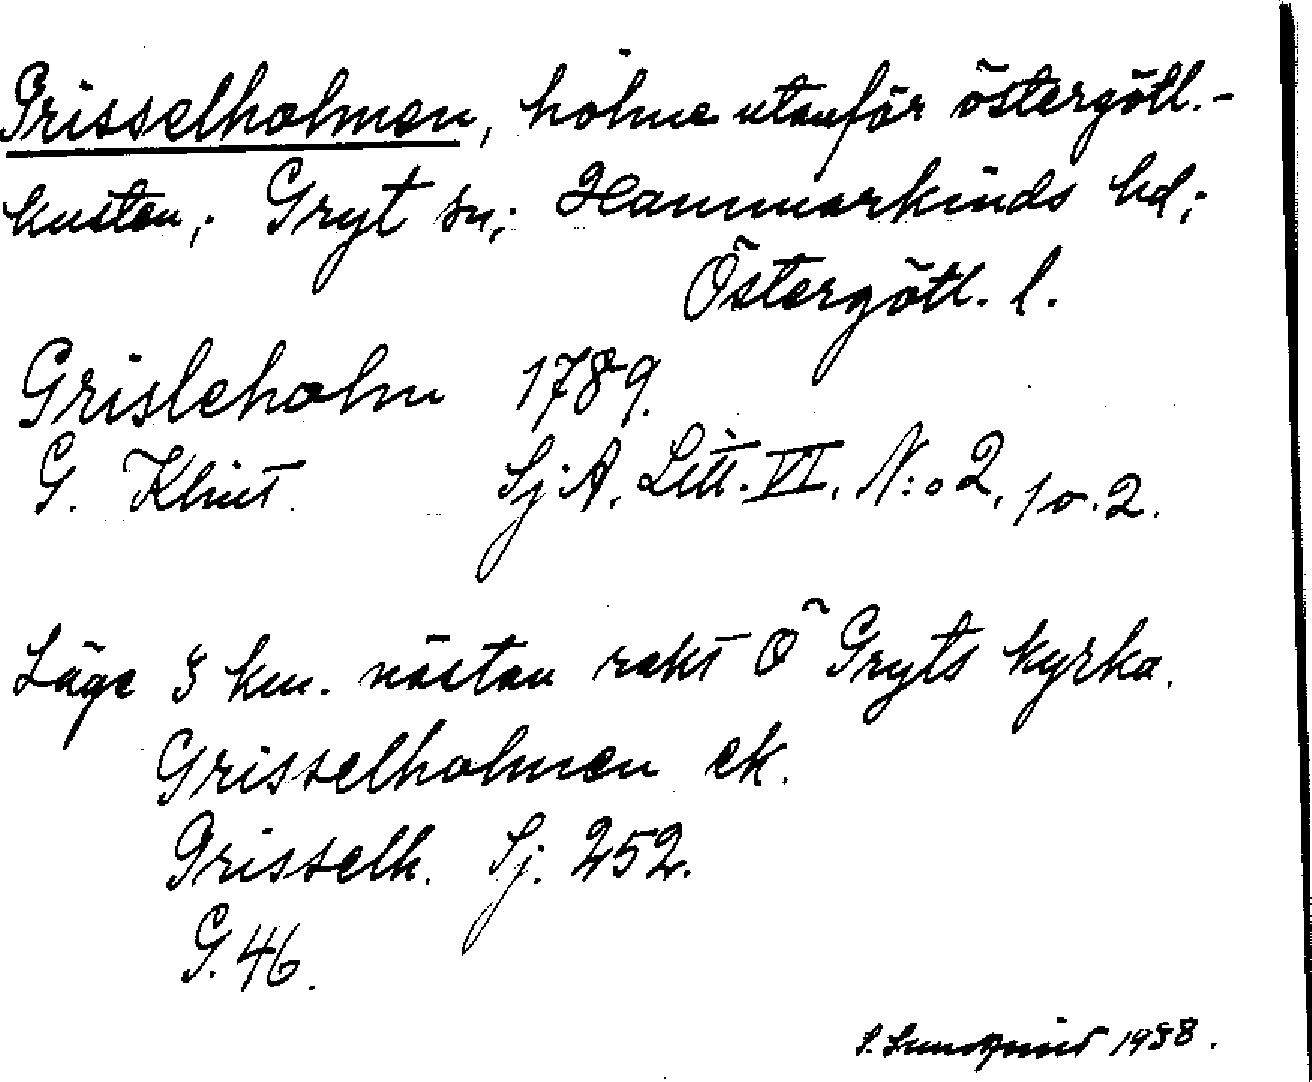 Grisselholmen, holme utanför östergötl.-
kusten, Gryt sn, Hammarkinds hd,
Östergötl. l.
Grisleholm 1789.
G. Klint SjA. Litt. VI. N:o 2, p. 2.
Läge 5 km. nästan rakt Ö Gryts kyrka.
Grisselholmen ek.
Grisselh. Sj. 252.
G. 46.
S. Lundqvist 1938.